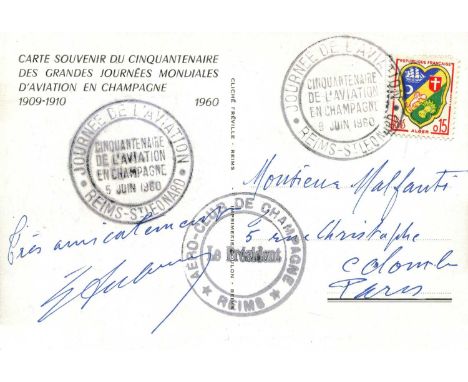 CARTE SOUVENIR DU CINQUANTENAIRE
DES GRANDES JOURNÉES MONDIALES
D'AVIATION EN CHAMPAGNE
1909-1910 1960
JOURNÉE DE L'AVIATION
CINQUANTENAIRE
DE L'AVIATION
EN CHAMPAGNE
5 JUIN 1960
REIMS-ST LEONARD
JOURNÉE DE L'AVIATION
CINQUANTENAIRE
DE L'AVIATION
EN CHAMPAGNE
5 JUIN 1960
REIMS-ST LEONARD
REPUBLIQUE FRANÇAISE
0,15
ALGER
CLICHÉ FRÉVILLE - REIMS
Très amicalement
AERO-CLUB DE CHAMPAGNE
Le Président
REIMS
Monsieur Malfanti
5 rue Christophe
Colomb
Paris